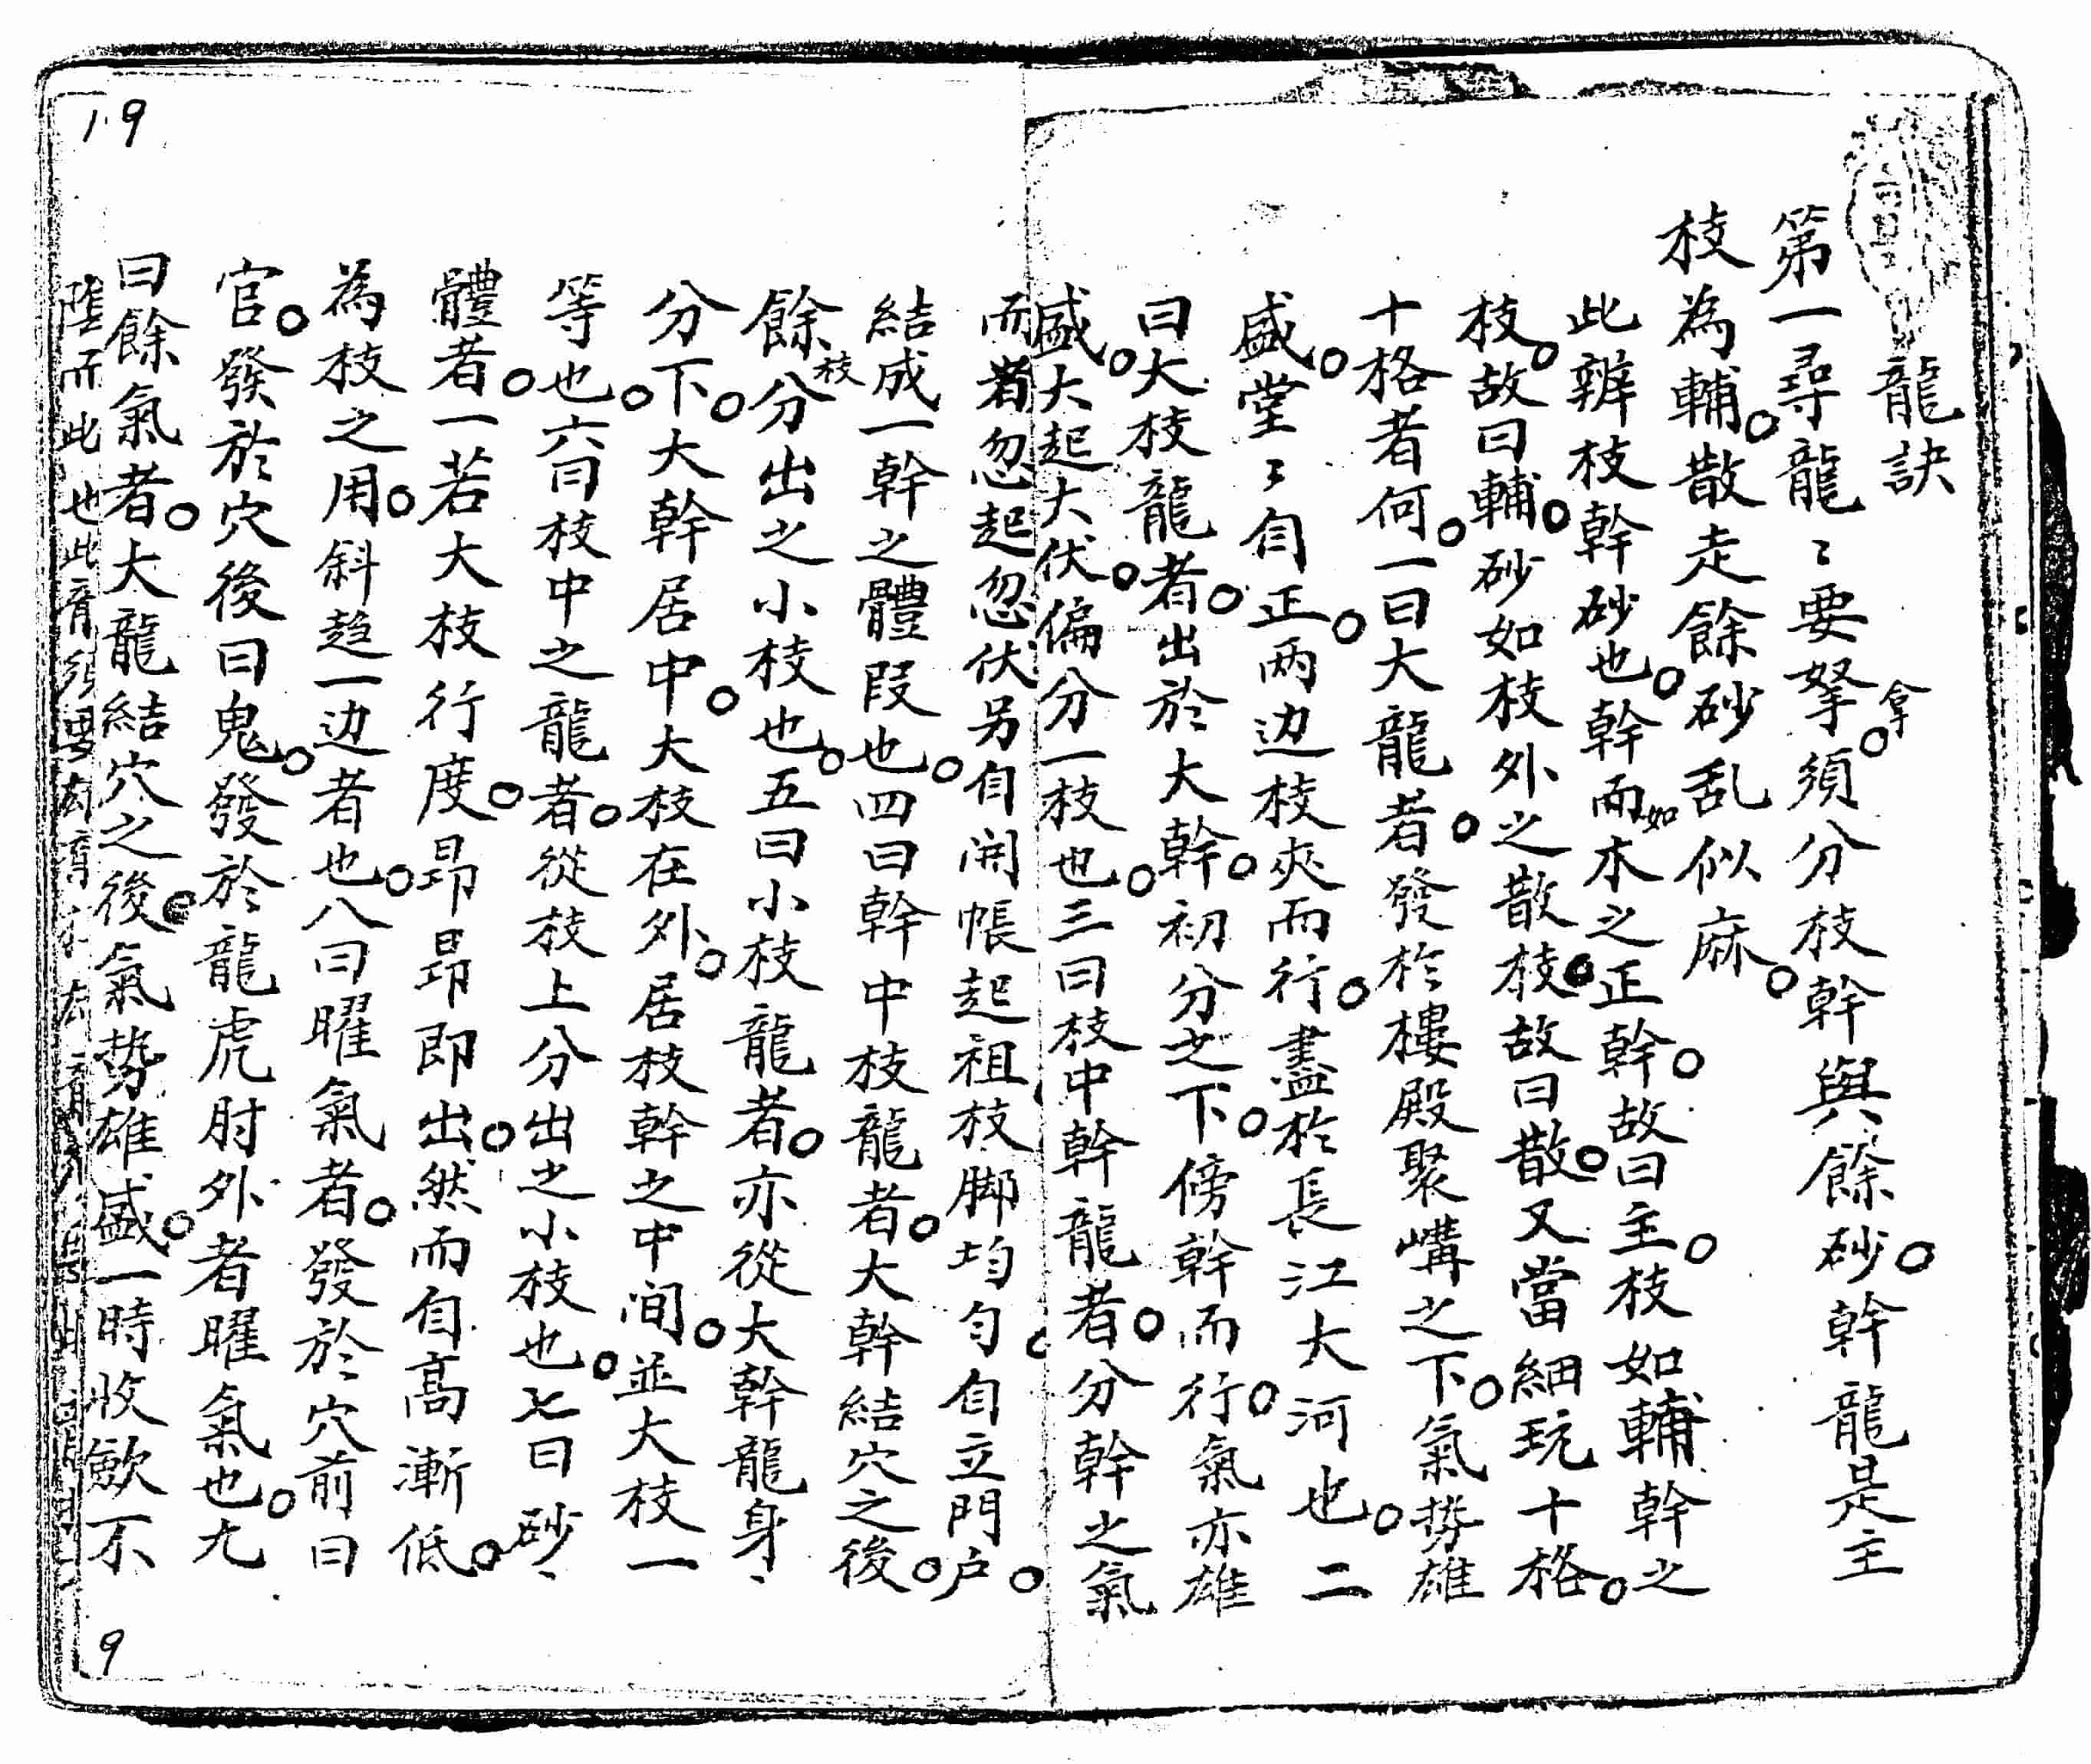 龍訣
第一尋龍〻要拏拿須分枝幹與餘砂幹龍是主
枝為輔散走餘砂乱似麻
此辨枝幹砂也幹而如木之正幹故曰主枝如輔幹之
枝故曰輔砂如枝外之散枝故曰散又當細玩十格
十格者何一曰大龍者發於樓殿聚講之下氣势雄
盛堂〻自正兩边枝夾而行盡於長江大河也二
曰大枝龍者出於大幹初分之下傍幹而行氣亦雄
盛大起大伏偏分一枝也三曰枝中幹龍者分幹之氣
而者忽起忽伏另自開帳起祖枝脚均匀自立門户
結成一幹之體段也四曰幹中枝龍者大幹結穴之後
餘枝分出之小枝也五曰小枝龍者亦從大幹龍身
分下大幹居中大枝在外居枝幹之中间並大枝一
等也六曰枝中之龍者從枝上分出之小枝也七曰砂
體者一若大枝行度昂昂即出然而自高漸低
為枝之用斜趋一边者也八曰曜氣者發於穴前曰
官發於穴後曰鬼發於龍虎肘外者曜氣也九
曰餘氣者大龍結穴之後氣势雄盛一時收歛不
19
9